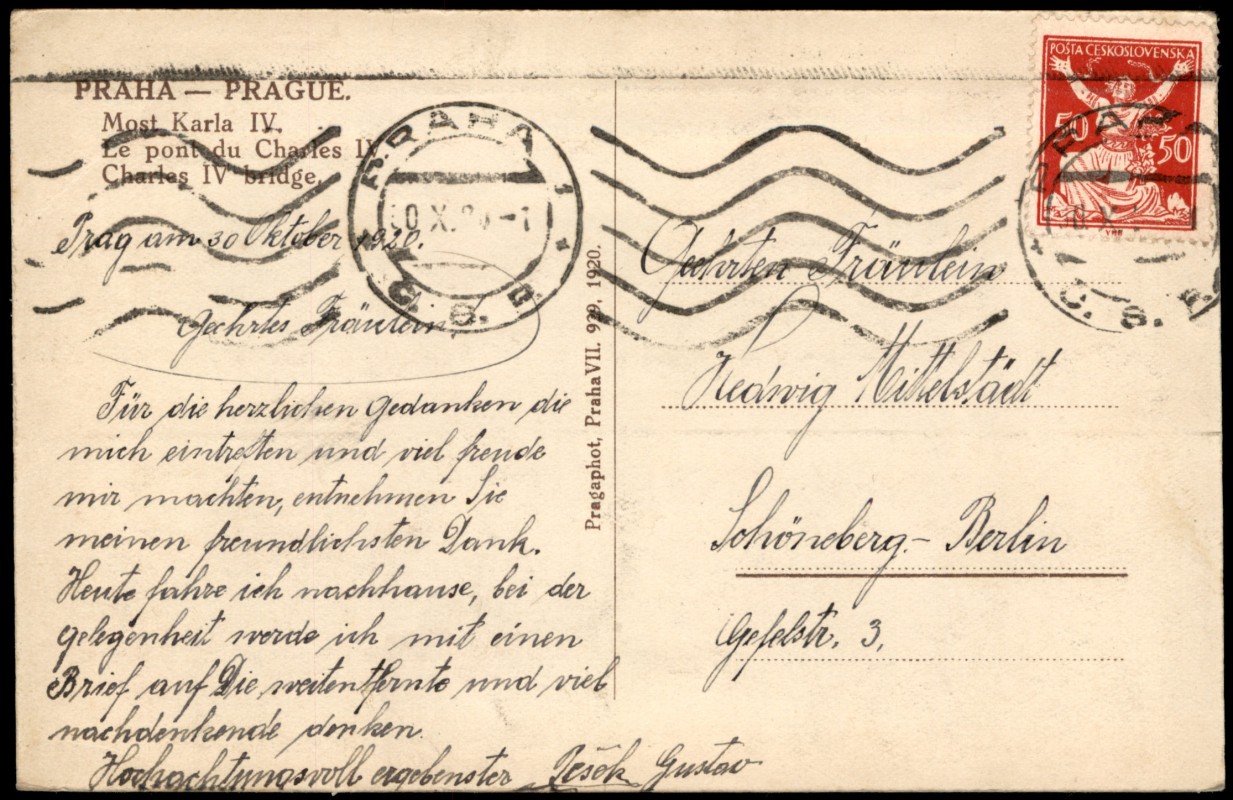 PRAHA — PRAGUE.
Most Karla IV.
Le pont du Charles IV
Charles IV bridge.
Prag am 30 Oktober 1920.
Geehrtes Fräulein!
Für die herzlichen Gedanken die
mich eintreffen und viel freude
mir machten, entnehmen Sie
meinen freundlichsten Dank.
Heute fahre ich nachhause, bei der
gelegenheit werde ich mit einen
Brief auf Die weitentfernte und viel
nachdenkende denken.
Hochachtungsvoll ergebenster Pešek Gustav
Pragaphot, Praha VII. 929, 1920.
POŠTA ČESKOSLOVENSKÁ
50 50
PRAHA 1
0.X.20-1
Č. S. P.
PRAHA
Č. S. P.
Geehrten Fräulein
Hedwig Mittelstädt
Schöneberg - Berlin
Gefelstr. 3.